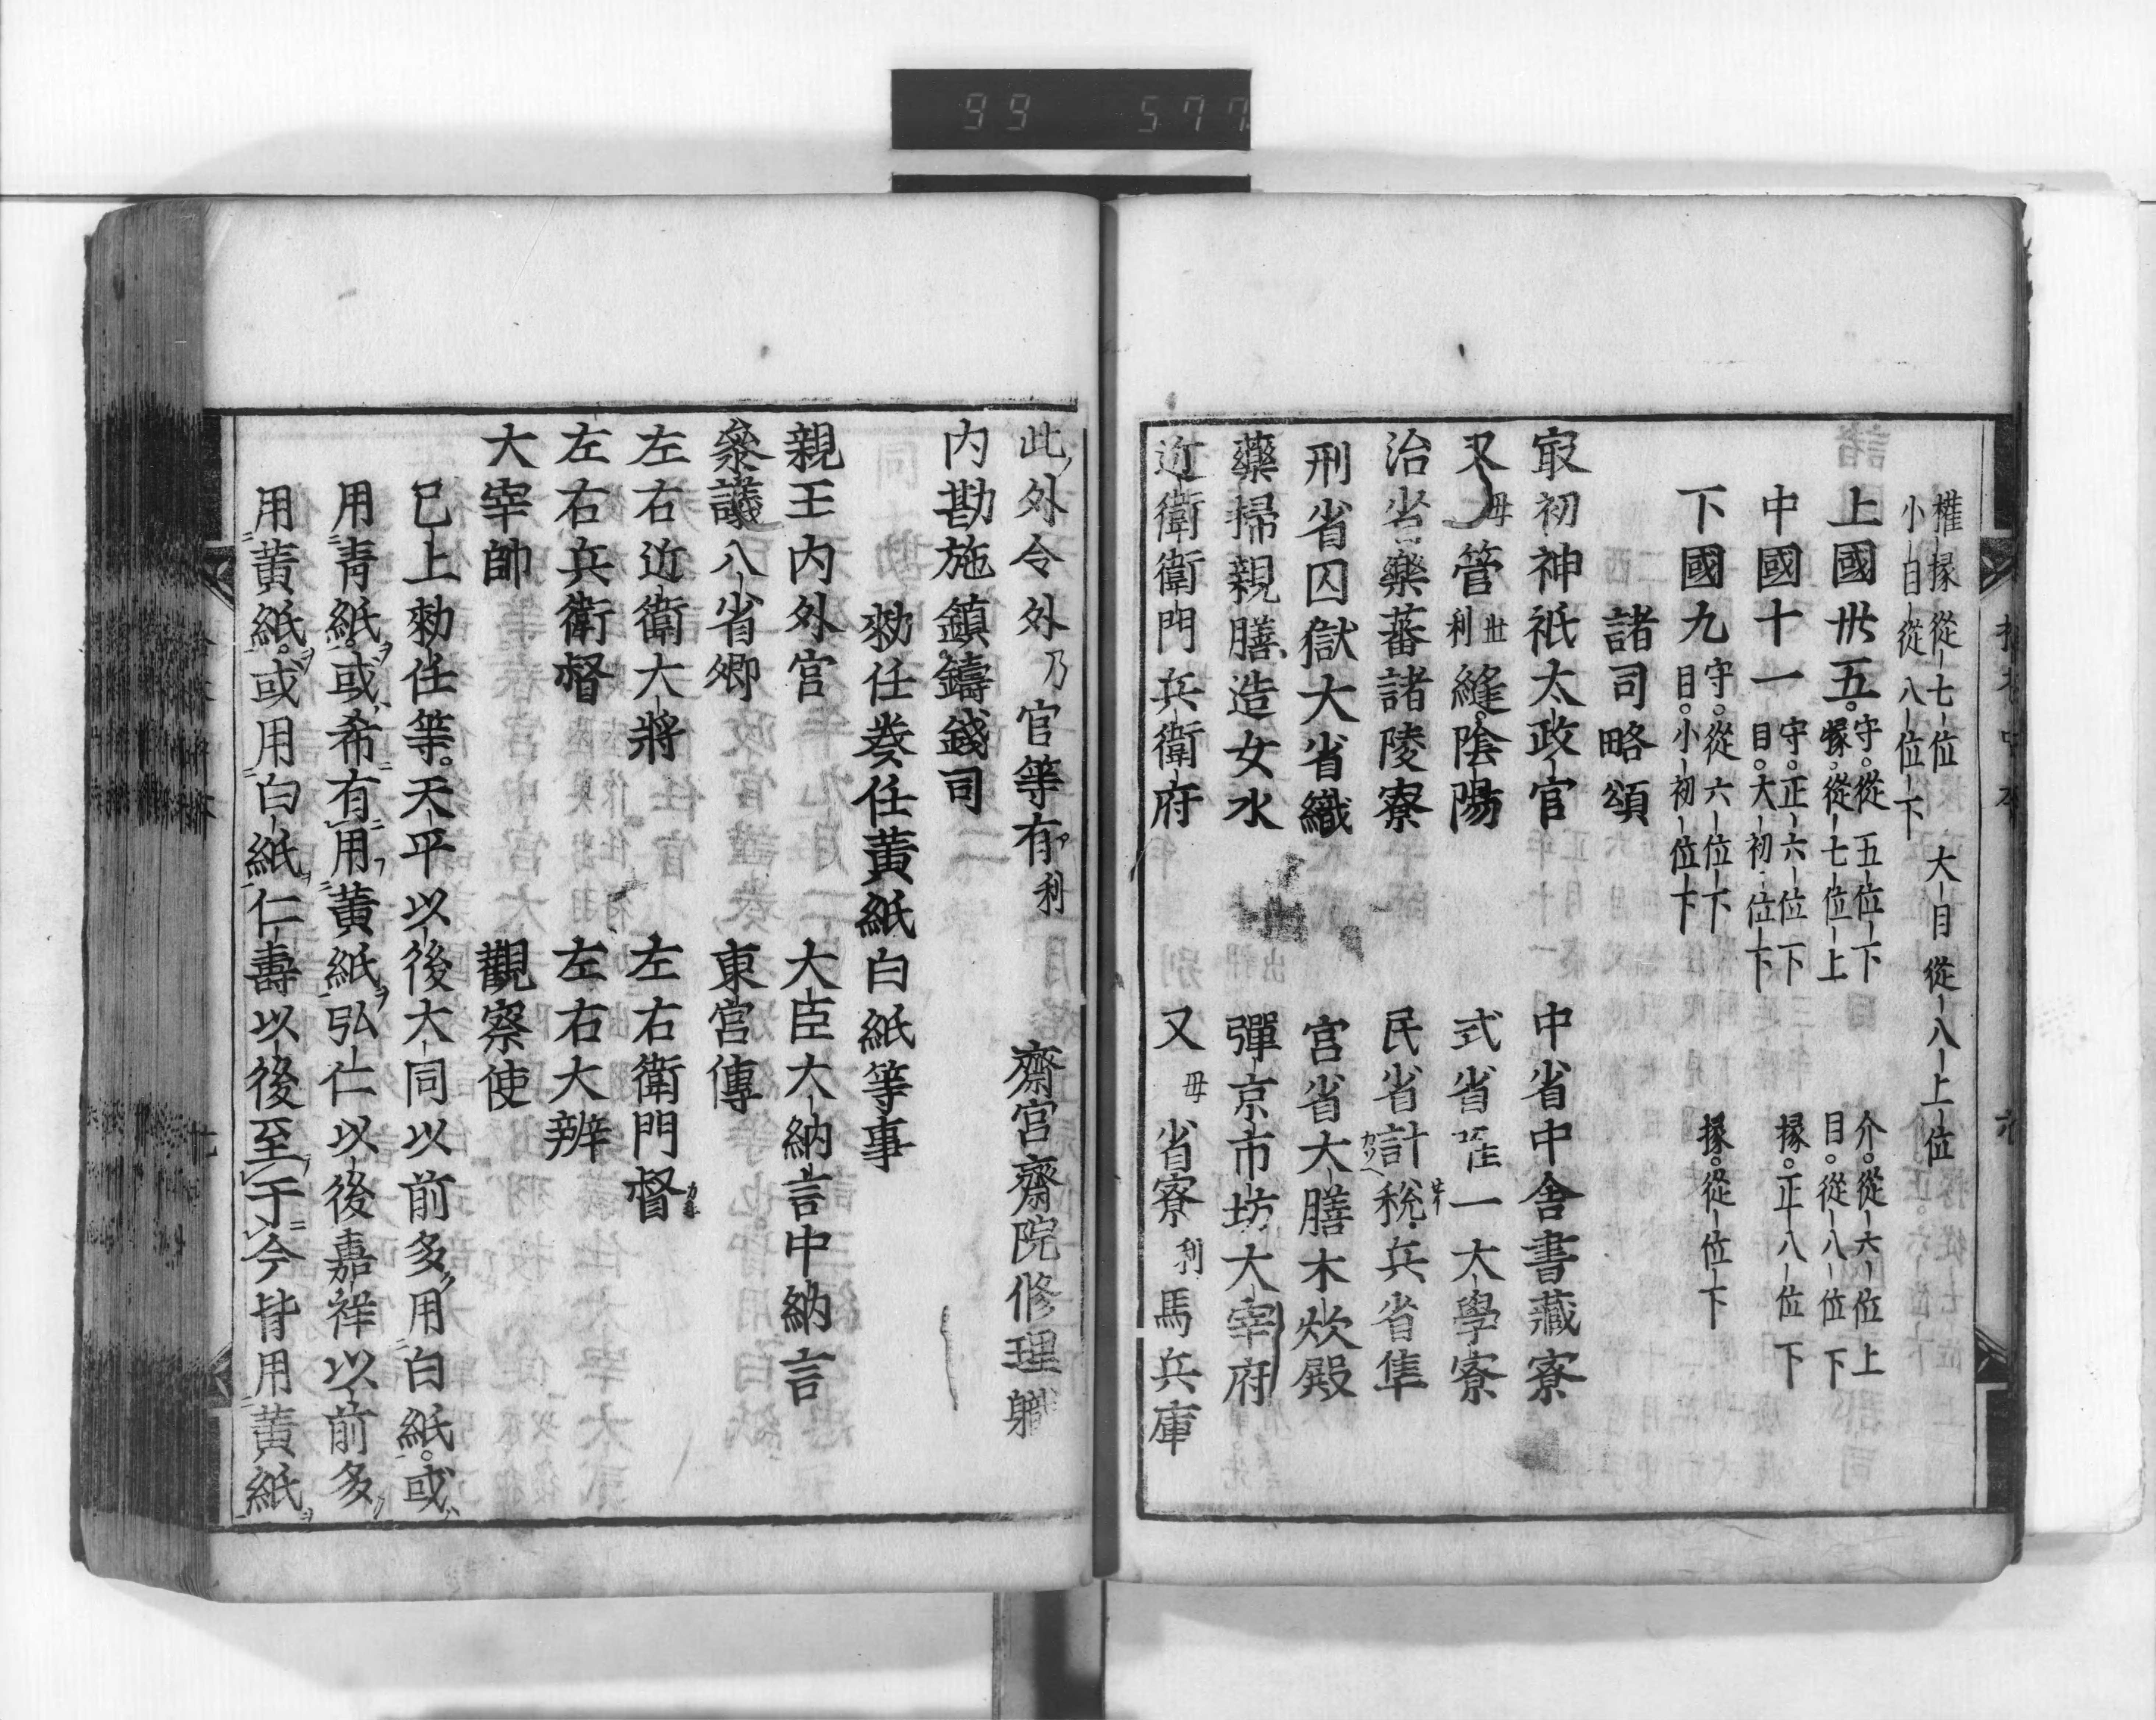 99 577
權掾從七位 大目從八上位
小目從八位下
上國卅五。守。從五位下 介。從六位上
掾。從七位上 目。從八位下
中國十一 守。正六位下 掾。正八位下
目。大初位下
下國九 守。從六位下 掾。從位下
目。小初位下
諸司略頌
㝡初神祇太政官 中省中舍書藏寮
又毋管卅利縫。陰陽 式省一大學寮
治省樂蕃諸陵寮 民省計稅兵省隼
刑省囚獄大省織 宮省大膳木炊殿
藥掃親膳造女水 彈京市坊大宰府
近衛衛門兵衛府 又毋省寮利馬兵庫
此外令外乃官等有利 齋宮齋院修理職
内勘施鎮鑄錢司
勑任奏任黃紙白紙等事
親王内外官 大臣大納言中納言
叅議八省卿 東宮傳
左右近衛大將 左右衛門督
左右兵衛督 左右大辨
大宰帥 觀察使
已上勑任等。天平以後大同以前多用白紙。或
用靑紙。或希有用黃紙弘仁以後嘉祥以前多
用黃紙。或用白紙仁壽以後至于今皆用黃紙